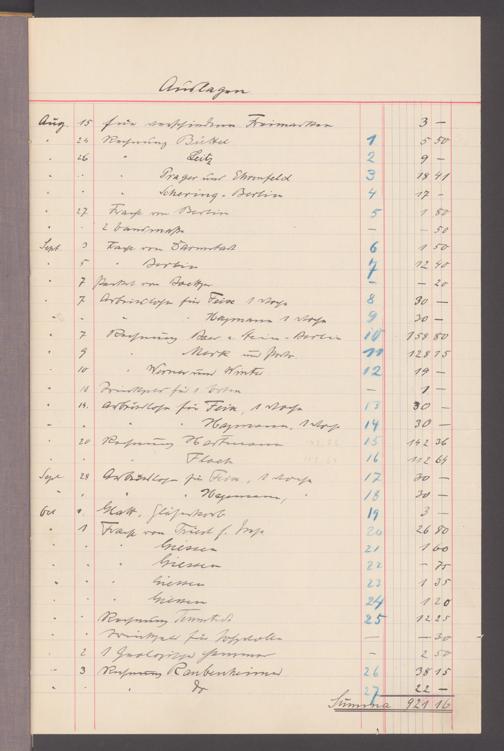 Auslagen
Aug. 15 für verschiedene Freimarken 3 –
" 24 Rechnung Büttel 1 5 50
" 26 " Leitz 2 9 –
" " " Prager und Ehrenfeld 3 18 41
" " " Schering - Berlin 4 17 –
" 27 Fracht von Berlin 5 1 80
" " 2 Bandmaße – – 50
Sept 3 Fracht von Darmstadt 6 1 50
" 5 " Berlin 7 12 40
" 7 Packet von – – 20
" 7 Arbeitslohn für Feix 1 Woche 8 30 –
" " " " Hapmann 1 Woche 9 30 –
" 7 Rechnung - Berlin 10 158 80
" 9 " Merk und 11 128 15
" 10 " Werner und Winter 12 19 –
" Trinkgeld für – 1 –
" 14. Arbeitslohn für Feix, 1 Woche 13 30 –
" " " " Hapmann, 1 Woche 14 30 –
" 20 Rechnung Hartmann 15 142 36
" " " Flach 16 112 64
Sept 28 Arbeitslohn für Feix, 1 Woche 17 30 –
" " " " Hapmann, " 18 30 –
Oct 19 3 –
" 1 Fracht von 20 26 80
" " " Giessen 21 1 60
" " " Giessen 22 – 75
" " " Giessen 23 1 35
" " " Giessen 24 1 20
" " Rechnung 25 12 25
" " Trinkgeld für – – 30
" 2 1 Geologischer Hammer – 2 50
" 3 Rechnung Raubenheimer 26 38 15
" " " do 27 22 –
Summa 921 16